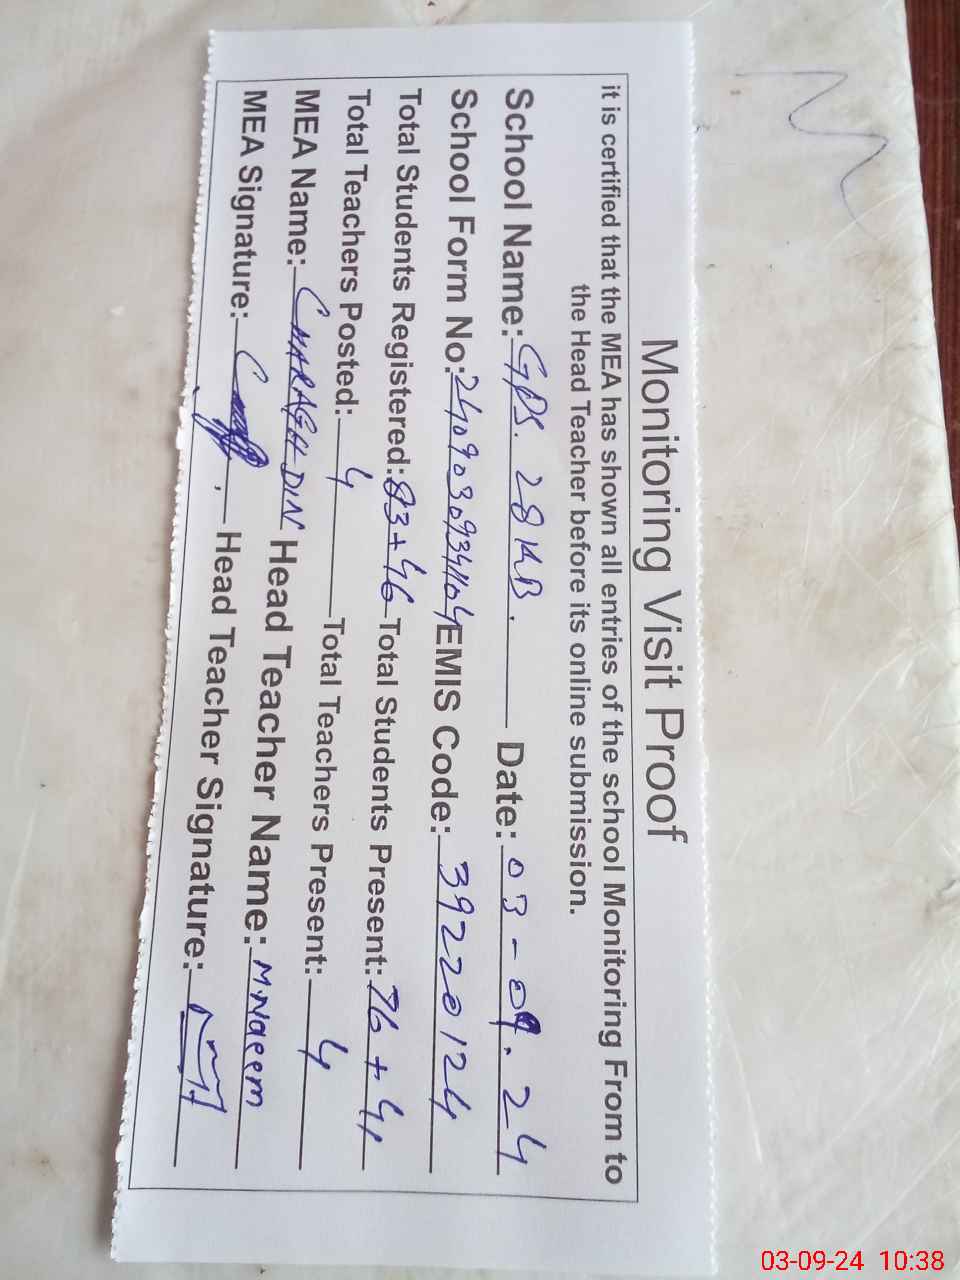 Monitoring Visit Proof
it is certified that the MEA has shown all entries of the school Monitoring From to
the Head Teacher before its online submission.
School Name: GPS. 28 KB. Date: 03-09.24
School Form No: EMIS Code: 39220124
Total Students Registered: 83+46 Total Students Present: 76+41
Total Teachers Posted: 4 Total Teachers Present: 4
MEA Name: CHARAGH DIN Head Teacher Name: M.Naeem
MEA Signature: , Head Teacher Signature:
03-09-24 10:38